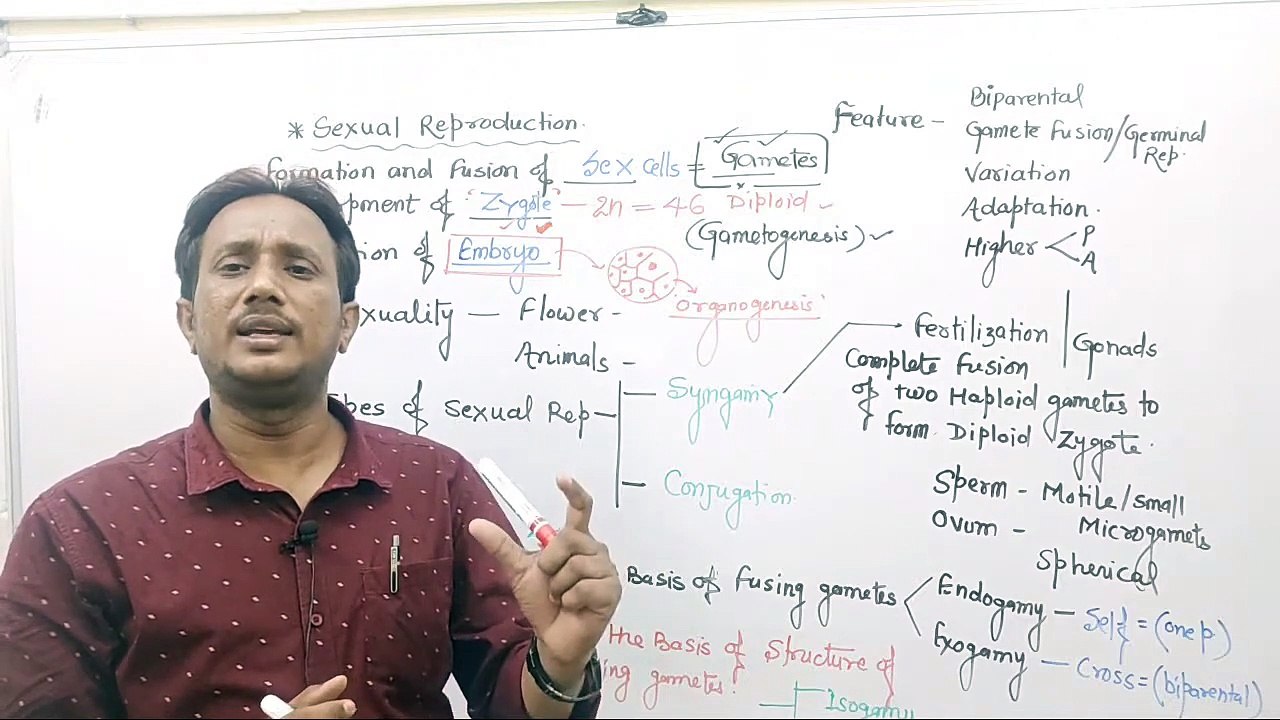 * Sexual Reproduction.
Formation and Fusion of Sex cells = Gametes
pment of "Zygote" - 2n = 46 Diploid
(Gametogenesis)
ion of Embryo
"Organogenesis"
xuality - Flower -
Animals -
bes of Sexual Rep -
Syngamy
Conjugation.
Feature - Biparental
Gamete Fusion/Germinal
Rep.
Variation
Adaptation.
Higher < P
A
Fertilization | Gonads
Complete Fusion
of two Haploid gametes to
form Diploid Zygote.
Sperm - Motile/small
Ovum - Microgamets
Spherical
Basis of Fusing gametes
Endogamy - Self = (one p)
Exogamy - Cross = (biparental)
the Basis of Structure of
ing gametes.
Isogamy